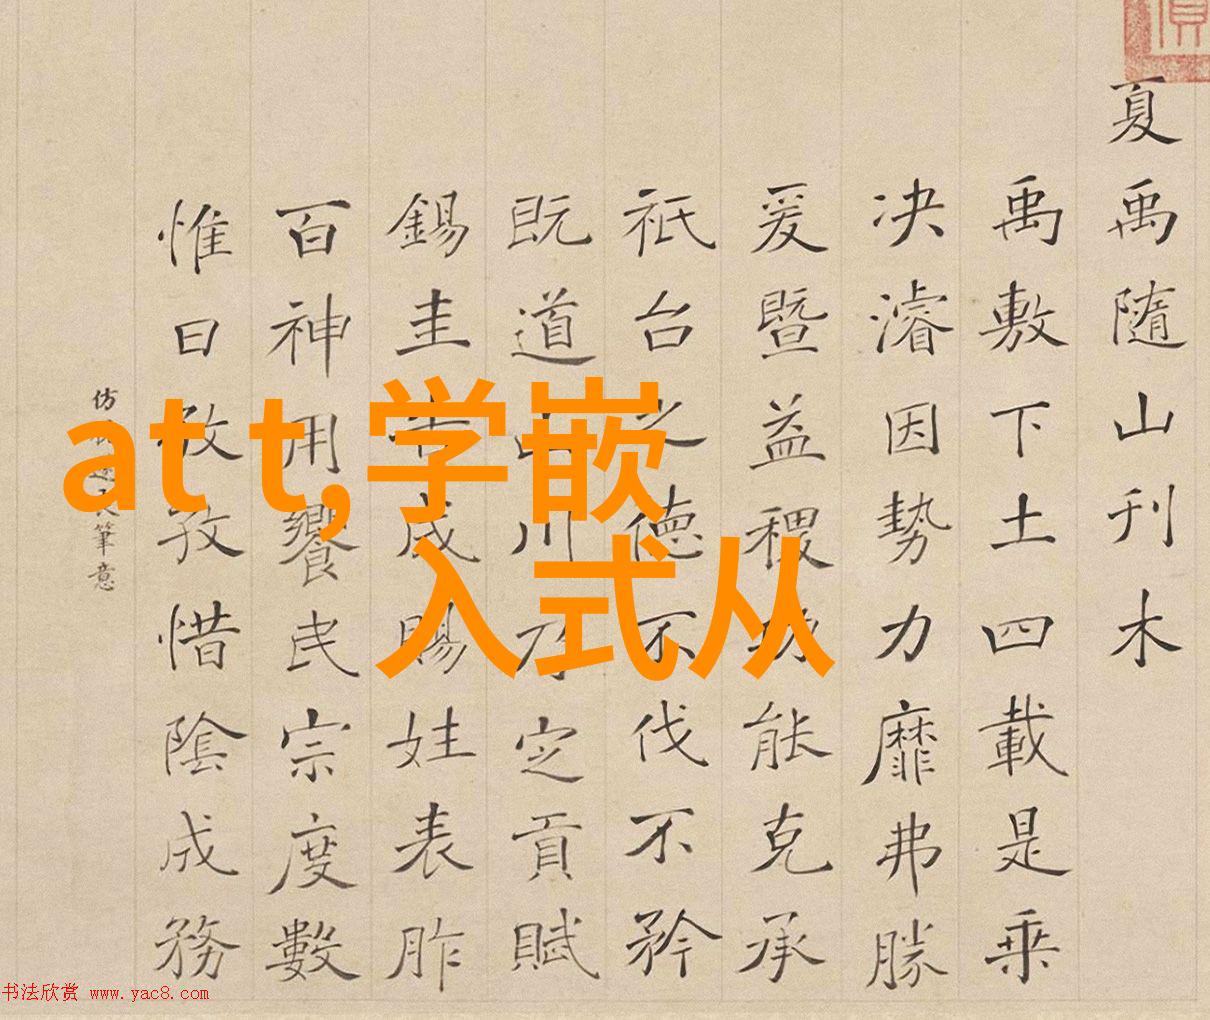 夏禹隨山刊木
禹敷下土四載是乘
决濬因勢力靡弗勝
爰暨益稷功能克承
祗台之德不伐不矜
既道山川乃定貢賦
錫圭成賜姓表胙
百神用饗民宗度數
惟日孜孜惜陰成務
仿筆意
att,学嵌
入式从
书法欣赏 www.yac8.com